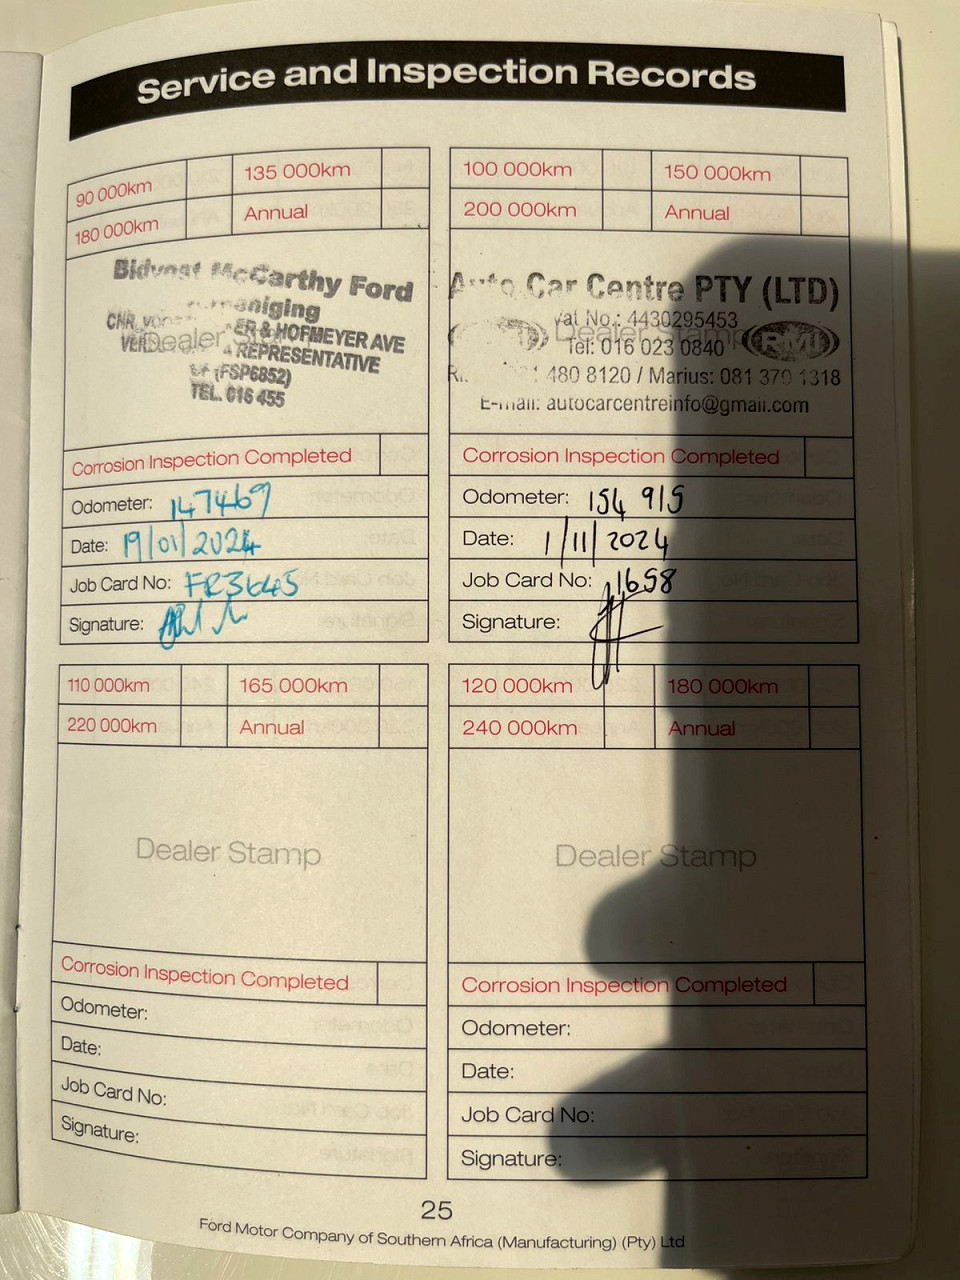 Service and Inspection Records
90 000km 135 000km
180 000km Annual
Bidvest McCarthy Ford
CNR. ER & HOFMEYER AVE
Dealer
REPRESENTATIVE
(FSP6852)
TEL. 016 455
Corrosion Inspection Completed
Odometer: 147469
Date: 19/01/2024
Job Card No:
Signature:
100 000km 150 000km
200 000km Annual
Auto Car Centre PTY (LTD)
Vat No.: 4430295453
Dealer Stamp
RMI
Tel: 016 023 0840
480 8120 / Marius: 081 370 1318
E-mail: autocarcentreinfo@gmail.com
Corrosion Inspection Completed
Odometer: 154 915
Date: 1/11/2024
Job Card No: 1658
Signature:
110 000km 165 000km
220 000km Annual
Dealer Stamp
Corrosion Inspection Completed
Odometer:
Date:
Job Card No:
Signature:
120 000km 180 000km
240 000km Annual
Dealer Stamp
Corrosion Inspection Completed
Odometer:
Date:
Job Card No:
Signature:
25
Ford Motor Company of Southern Africa (Manufacturing) (Pty) Ltd